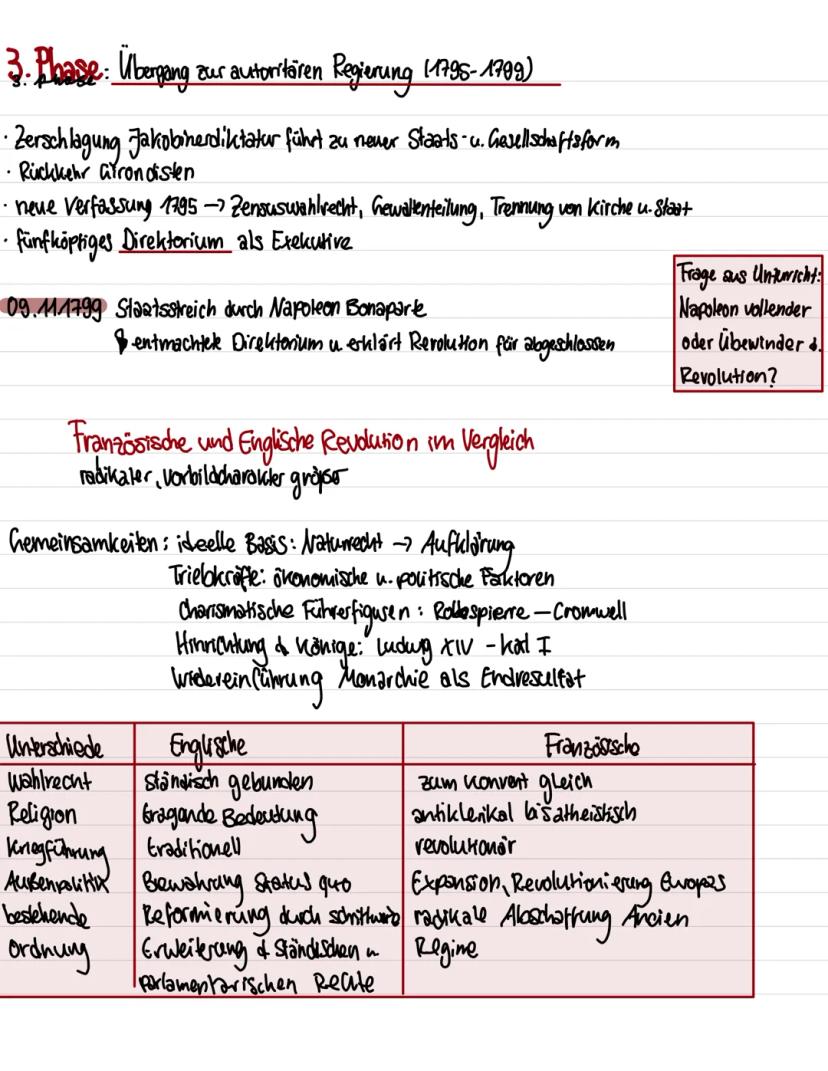 3. Phase: Übergang zur autoritären Regierung (1795-1799)
· Zerschlagung Jakobinerdiktatur führt zu neuer Staats- u. Gesellschaftsform
· Rückkehr Girondisten
· neue Verfassung 1795 → Zensuswahlrecht, Gewaltenteilung, Trennung von Kirche u. Staat
· fünfköpfiges Direktorium als Exekutive
09.11.1799 Staatsstreich durch Napoleon Bonaparte
↳ entmachtete Direktorium u. erklärt Revolution für abgeschlossen
Frage aus Unterricht:
Napoleon vollender
oder Überwinder d.
Revolution?
Französische und Englische Revolution im Vergleich
radikaler, Vorbildcharakter größer
Gemeinsamkeiten: ideelle Basis: Naturrecht → Aufklärung
Triebkräfte: ökonomische u. politische Faktoren
charismatische Führerfiguren: Robespierre – Cromwell
Hinrichtung d. Könige: Ludwig XIV - Karl I
Widereinführung Monarchie als Endresultat
Unterschiede Englische Französische
Wahlrecht ständisch gebunden zum Konvent gleich
Religion tragende Bedeutung antiklerikal bis atheistisch
Kriegführung traditionell revolutionär
Außenpolitik Bewahrung Status quo Expansion, Revolutionierung Europas
bestehende Reformierung durch schrittweise radikale Abschaffung Ancien
Ordnung Erweiterung d. Ständischen u. Régime
parlamentarischen Rechte